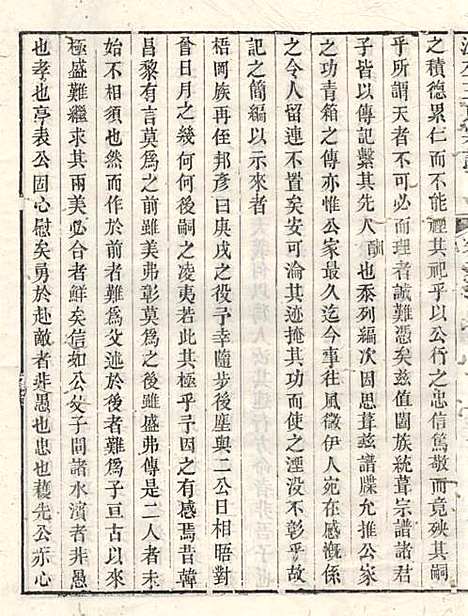 之積德累仁而不能禋其祀乎以公行之忠信篤敬而竟殃其嗣
乎所謂天者不可必而理者誠難憑矣茲值闔族統葺宗譜諸君
子皆以傳記繫其先人酬也忝列編次因思葺茲譜牒允推公家
之功青箱之傳亦惟公家最久迄今事往風徽伊人宛在感慨係
之令人留連不置矣安可淪其迹掩其功而使之湮没不彰乎故
記之簡編以示來者
梧岡族再侄邦彦曰庚戌之役予幸隨步後塵與二公日相晤對
曾日月之幾何何後嗣之凌夷若此其極乎予因之有感焉昔韓
昌黎有言莫為之前雖美弗彰莫為之後雖盛弗傳是二人者未
始不相須也然而作於前者難為父述於後者難為子亘古以來
極盛難繼求其兩美必合者鮮矣信如公父子間諸水濱者非愚
也孝也亭表公固心慰矣勇於赴敵者非愚也忠也穫先公亦心